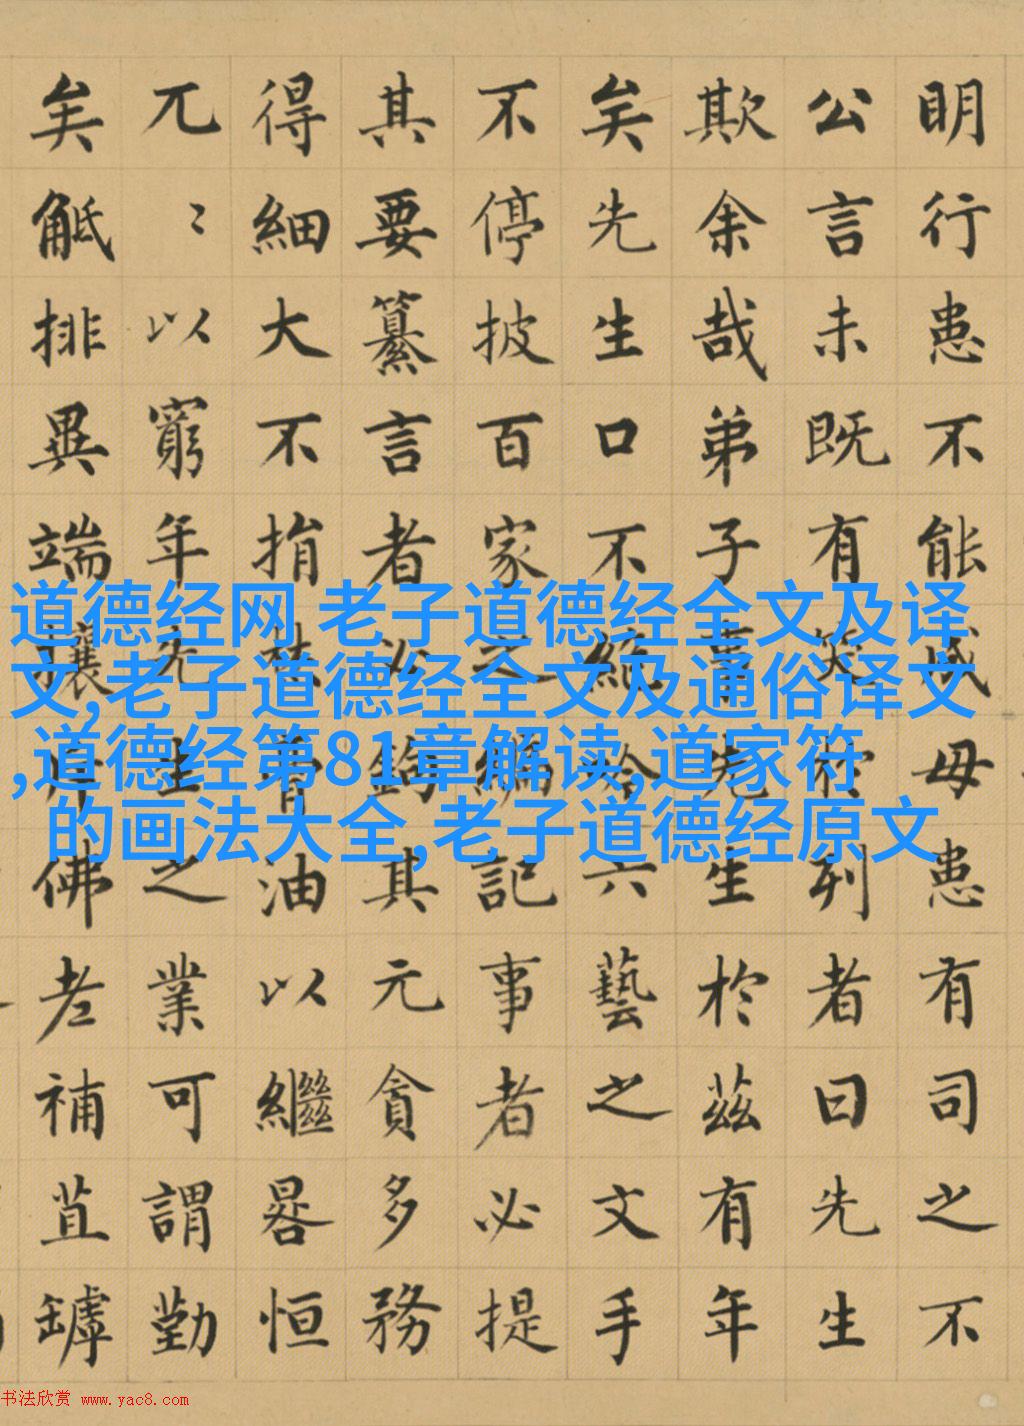 明行患不能成毋患有司之不
公言未既有笑於列者曰先生
欺余哉弟子事先生於茲有年
矣先生口不絶吟六藝之文手
不停披百家之編記事者必提
其要纂言者必鉤其元貪多務
得細大不捐焚膏油以繼晷恒
兀〻以窮年先生之業可謂勤
矣觝排異端攘斥佛老補苴罅
道德经网 老子道德经全文及译
文,老子道德经全文及通俗译文
,道德经第81章解读,道家符
的画法大全,老子道德经原文
书法欣赏 www.yac8.com